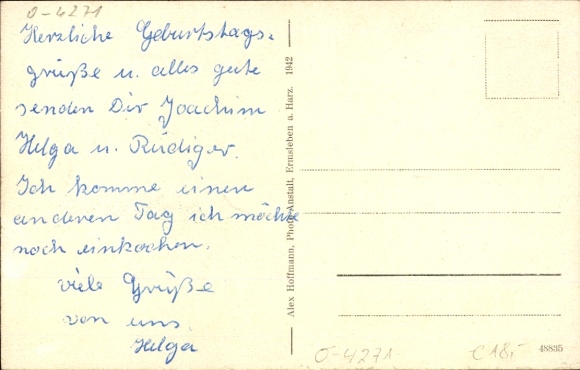 O-4271
Herzliche Geburtstags=
grüße u. alles gute
senden Dir Joachim
Helga u. Rüdiger.
Ich komme einen
anderen Tag ich möchte
noch einkochen.
viele Grüße
von uns.
Helga
Alex Hoffmann, Photo-Anstalt, Ermsleben a. Harz. 1942
O-4271
C18,-
48835